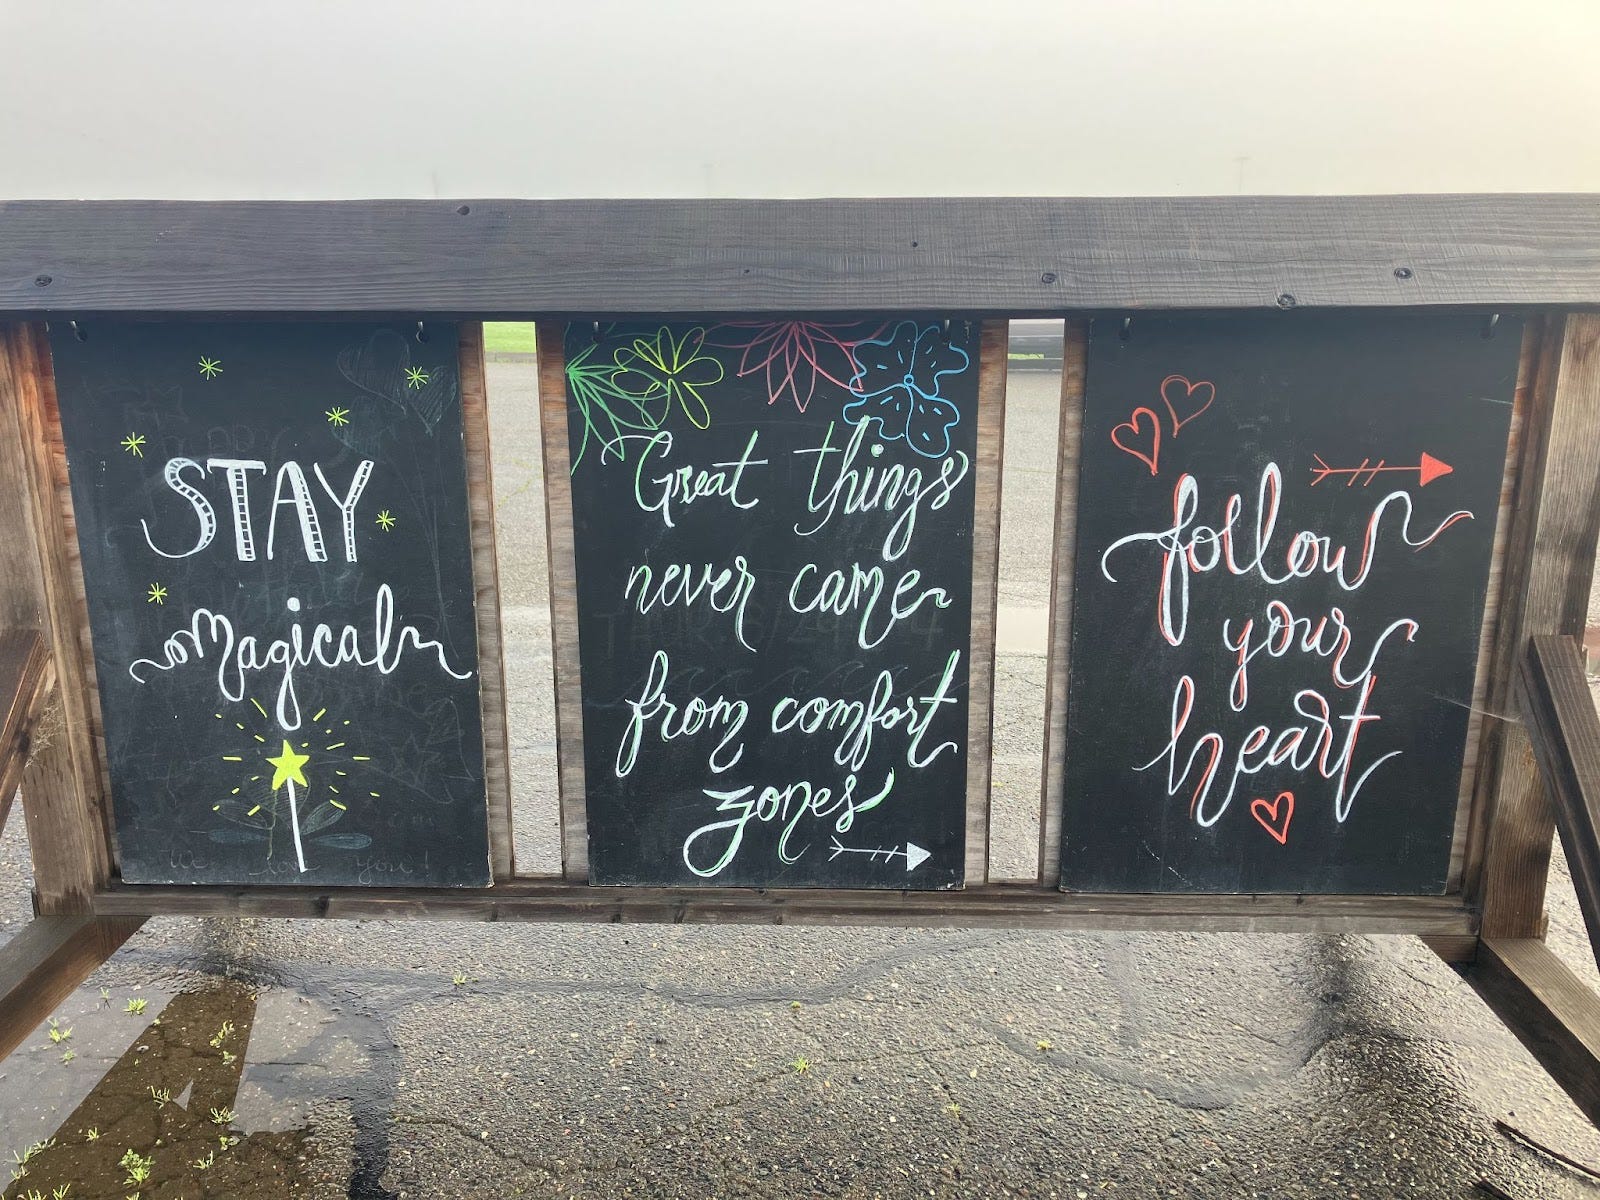 STAY
magical
Great things
never came
from comfort
zones
follow
your
heart